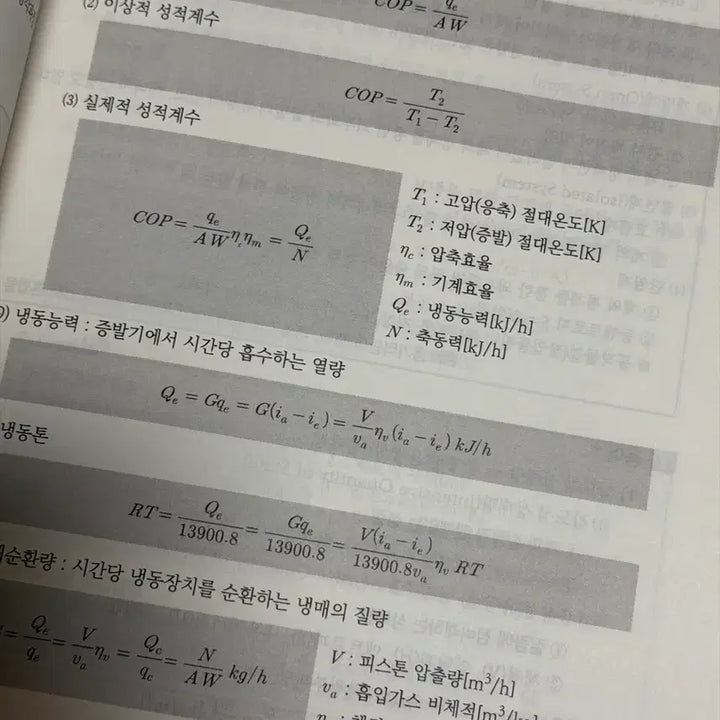 COP = q_e / AW
(2) 이상적 성적계수
COP = T_2 / (T_1 - T_2)
(3) 실제적 성적계수
COP = q_e / AW η_c η_m = Q_e / N
T_1 : 고압(응축) 절대온도[K]
T_2 : 저압(증발) 절대온도[K]
η_c : 압축효율
η_m : 기계효율
Q_e : 냉동능력[kJ/h]
N : 축동력[kJ/h]
) 냉동능력 : 증발기에서 시간당 흡수하는 열량
Q_e = Gq_e = G(i_a - i_e) = V / v_a η_v (i_a - i_e) kJ/h
냉동톤
RT = Q_e / 13900.8 = Gq_e / 13900.8 = V(i_a - i_e) / 13900.8v_a η_v RT
순환량 : 시간당 냉동장치를 순환하는 냉매의 질량
= Q_e / q_e = V / v_a η_v = Q_c / q_c = N / AW kg/h
V : 피스톤 압출량[m³/h]
v_a : 흡입가스 비체적[m³/